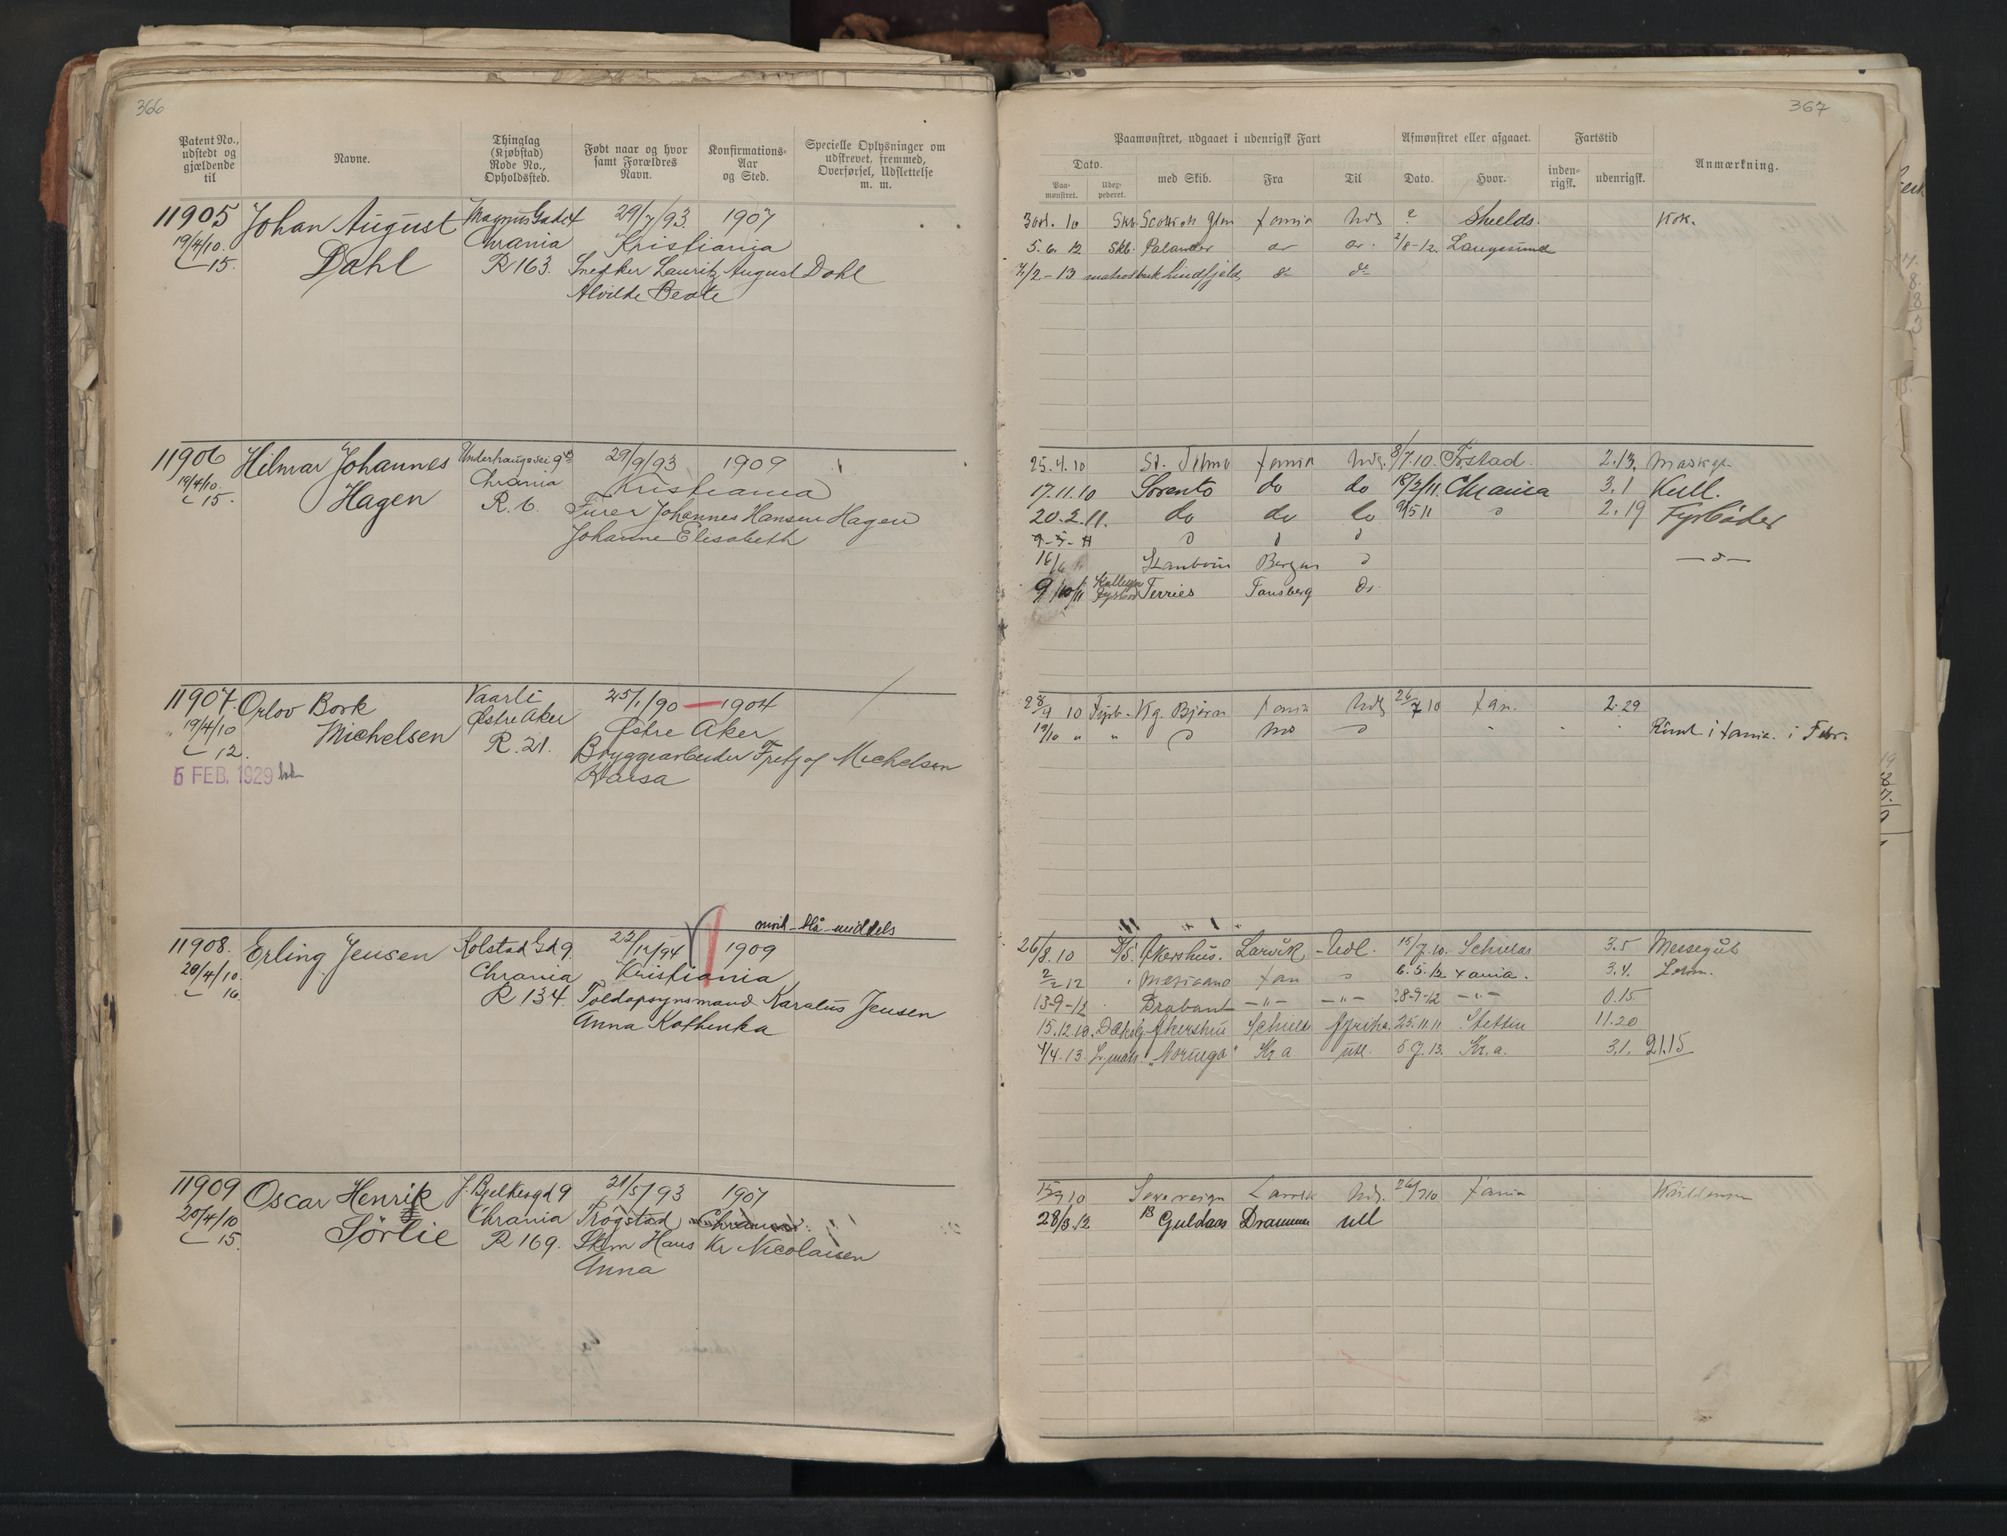 366
Patent No., udstedt og gjældende til
Navne.
Thinglag (Kjøbstad) Rode No., Opholdssted.
Født naar og hvor samt Forældres Navn.
Konfirmations-Aar og Sted.
Specielle Oplysninger om udskrevet, fremmed, Overførsel, Udslettelse m. m.
11905 Johan August Magnus Gade 4 29/7/93 1907
19/4/10 Chrania Kristiania
15. Dahl R 163. Snekker Lauritz August Dahl
Alvilde Beate
11906 Hilmar Johannes Underhaugsvei 9 29/9/93 1909
19/4/10. Chrania Kristiania
15. Hagen R. 6. Furer Johannes Hansen Hagen
Johanne Elisabeth
11907. Orlov Bork Vaarli 25/1/90 — 1904
19/4/10 Michelsen Østre Aker Østre Aker
12. R. 21. Bryggearbeider Michelsen
5 FEB. 1929
11908. Erling Jensen Kolstad Gd 9. 22/12/94 1909
20/4/10. Chrania Kristiania
16. R 134. Toldopsynsmand Karalus Jensen
Anna Kathinka
11909 Oscar Henrik J. Bjelkesgd 9 21/5/93 1907
20/4/10 Chrania Trøgstad Chrania
15. Sørlie R 169. Hans Kr Nicolaisen
Anna
367
Paamønstret, udgaaet i udenrigsk Fart
Afmønstret eller afgaaet.
Fartstid
Anmærkning.
Dato.
Paa-mønstret.
Udez-pederet.
med Skib.
Fra
Til
Dato.
Hvor.
inden-rigsk.
udenrigsk.
10 Xania Udl ? Shields. Kok.
5. 6. 12 Skb. Palander 2/8-12. Langesund
7/2-13 Lindfjeld do do
25.4.10 Xania Udl. 8/7.10. 2.13.
17.11.10 Sorento do do 18/2/11. Chrania 3.1 Kull.
20.2.11. do do do 9/5 11 2.19 Fyrbøder
16/6 Bergen
9/10/11 Terries Tønsberg do.
28/9 10 Fyrb. Kg. Bjørn Xania Udl 26/7 10 Xan. 2.29
19/10 " " i Xania. i Febr.
26/8.10 D/S. Akershus. Larvik Udl. 15/7.10. 3.5 Messegut
2/2 12 Mexicano Xan 6.5.12 Xania. 3.4.
13-9-12 Drabant -"- -"- 28-9-12 -"- 0.15
15.12.10. Akershus Schield Afrika. 25.11.11 Stettin 11.20
4/4.13. "Noruega" Kr.a utl. 6 9. 13. Kr. a. 3.1. 21.15
15/9 10 Sovereign Larvik Udl. 26/7 10 Xania
28/3.12 Guldaas Drammen utl